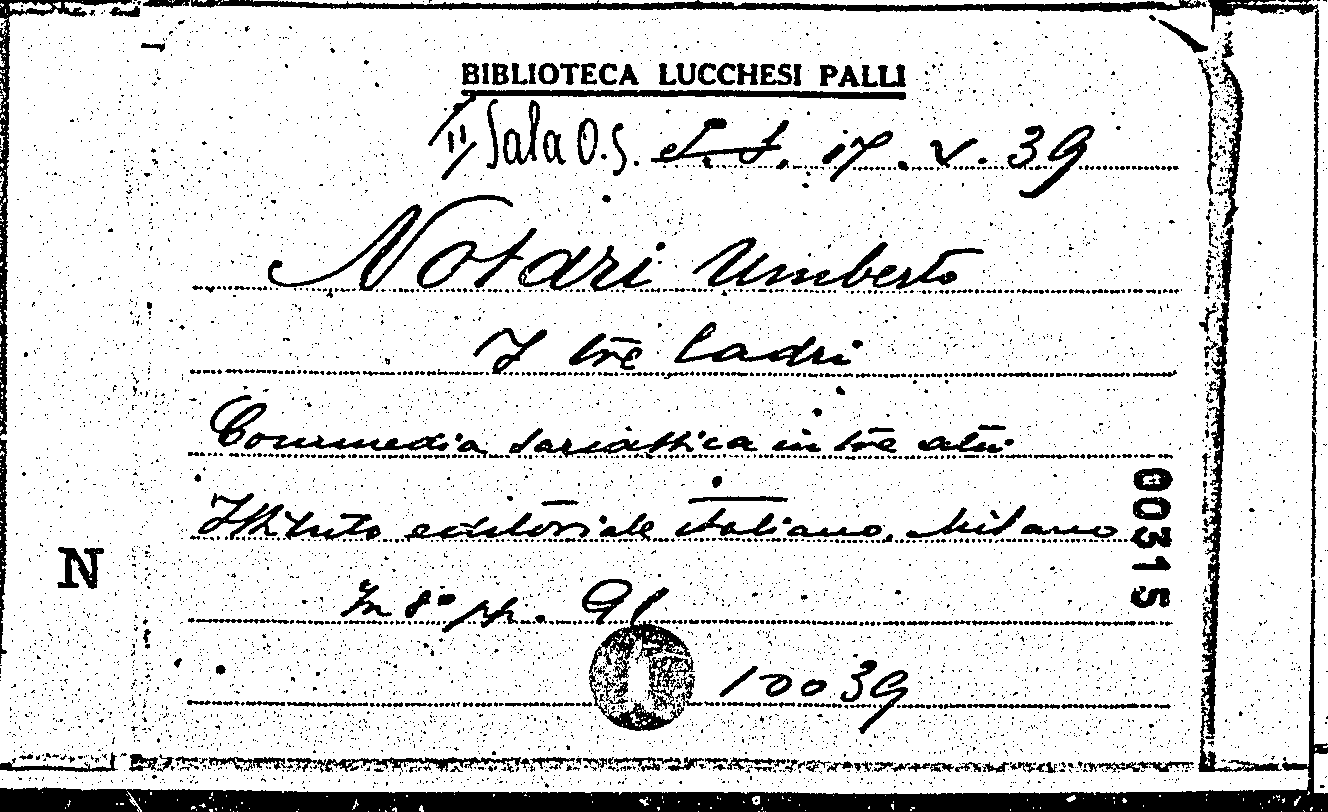 BIBLIOTECA LUCCHESI PALLI
II Sala O.S. S.S. 17.V.39
Notari Umberto
I tre ladri
Commedia sarcastica in tre atti
Istituto editoriale italiano. Milano
In 8° pp. 91
10039
N
00315